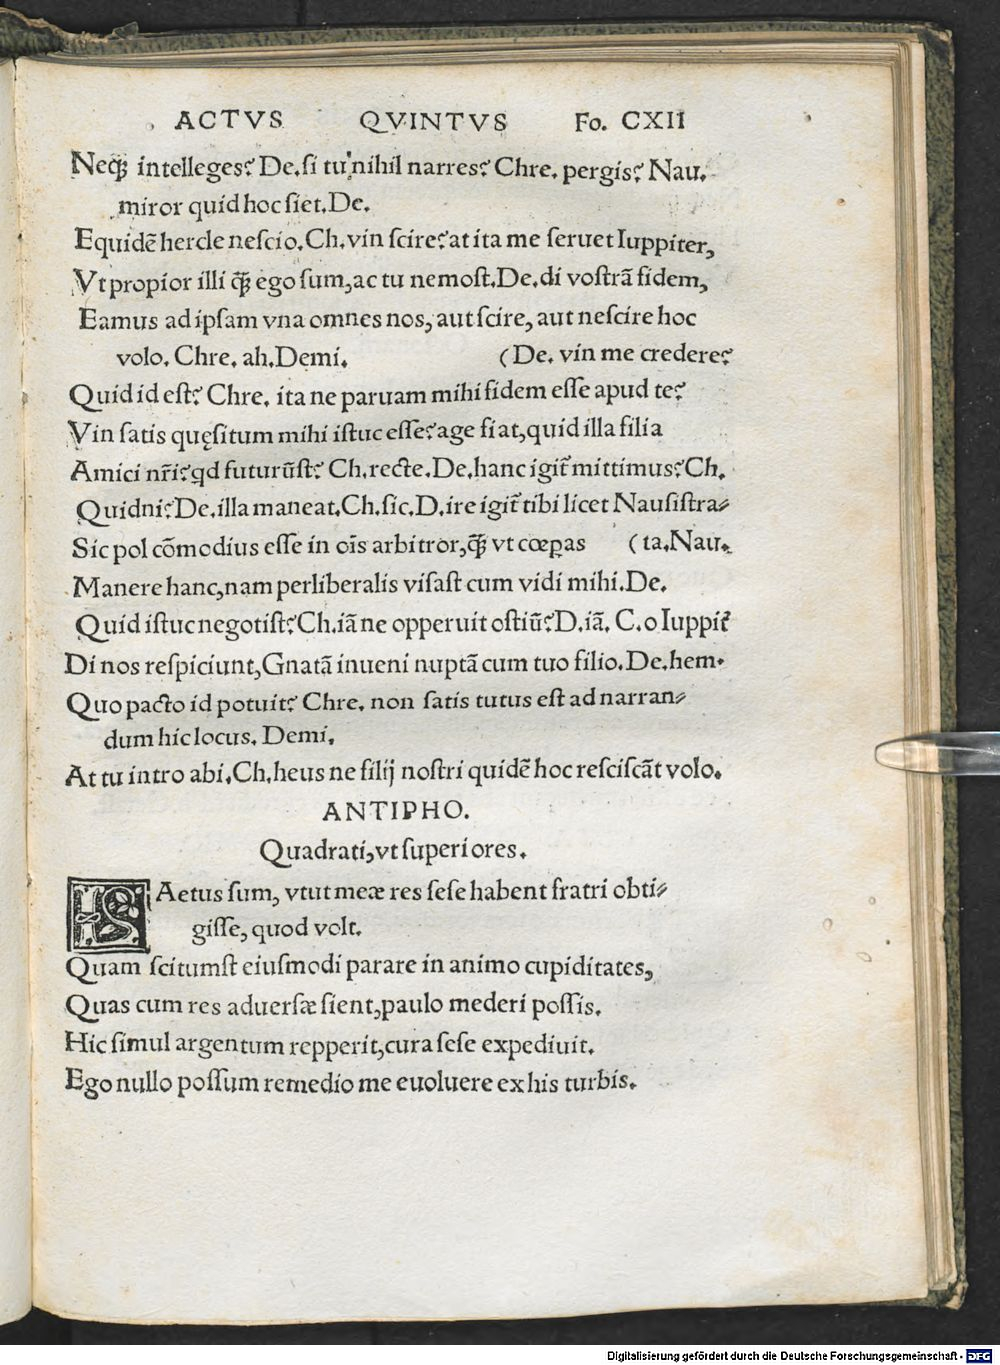 ACTVS QVINTVS Fo. CXII
Neqꝫ intelleges? De. ſi tu nihil narres? Chre. pergis? Nau.
miror quid hoc ſiet. De.
Equidē hercle neſcio. Ch. vin ſcire? at ita me ſeruet Iuppiter,
Vt propior illi q̄ꝫ ego ſum, ac tu nemoſt. De. di voſtrā fidem,
Eamus ad ipſam vna omnes nos, aut ſcire, aut neſcire hoc
volo. Chre. ah. Demi. (De. vin me credere?
Quid id eſt? Chre. ita ne paruam mihi fidem eſſe apud te?
Vin ſatis quęſitum mihi iſtuc eſſe? age fiat, quid illa filia
Amici nr̄i? qd futurūſt? Ch. recte. De. hanc igit̄ mittimus? Ch.
Quidni? De. illa maneat. Ch. ſic. D. ire igit̄ tibi licet Nauſiſtra⸗
Sic pol cōmodius eſſe in oīs arbitror, q̄ꝫ vt cœpas (ta. Nau.
Manere hanc, nam perliberalis viſaſt cum vidi mihi. De.
Quid iſtuc negotiſt? Ch. iā ne opperuit oſtiū? D. iā. C. o Iuppit̄
Di nos reſpiciunt, Gnatā inueni nuptā cum tuo filio. De. hem.
Quo pacto id potuit? Chre. non ſatis tutus eſt ad narran⸗
dum hic locus. Demi.
At tu intro abi. Ch. heus ne filij noſtri quidē hoc reſciſcāt volo.
ANTIPHO.
Quadrati, vt ſuperiores.
LAetus ſum, vtut meæ res ſeſe habent fratri obti⸗
giſſe, quod volt.
Quam ſcitumſt eiuſmodi parare in animo cupiditates,
Quas cum res aduerſæ ſient, paulo mederi poſſis.
Hic ſimul argentum repperit, cura ſeſe expediuit.
Ego nullo poſſum remedio me euoluere ex his turbis.
Digitalisierung gefördert durch die Deutsche Forschungsgemeinschaft - DFG